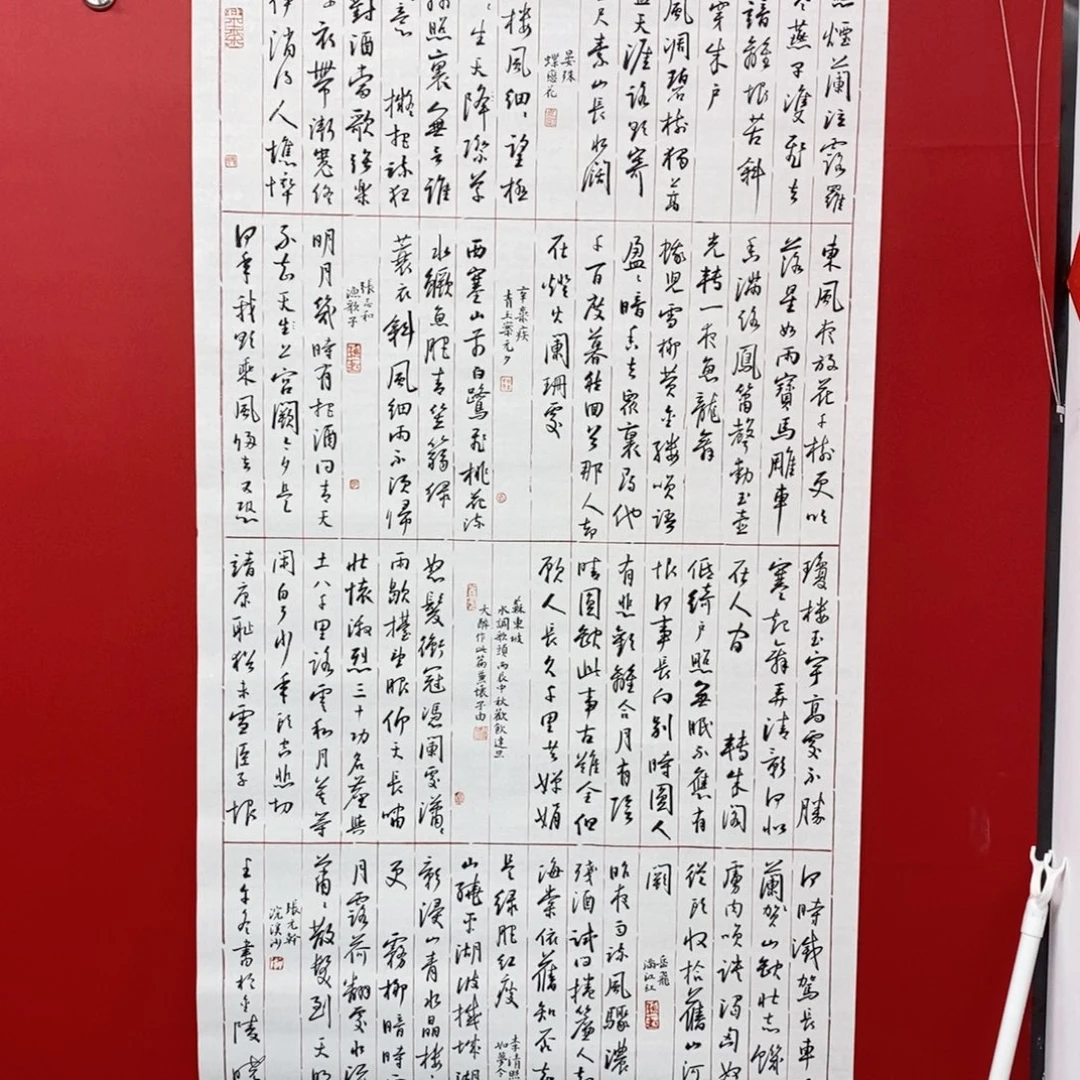 煙蘭泣露羅
寒燕子雙飛去
諳離恨苦斜
穿朱戶
風凋碧樹獨上高
盡天涯路欲寄
尺素山長水闊
晏殊
蝶戀花
樓風細細望極
生天際草
照裏無言誰
意 擬把疏狂
對酒當歌強樂
衣帶漸寬終
伊消得人憔悴
東風夜放花千樹更吹
落星如雨寶馬雕車
香滿路鳳簫聲動玉壺
光轉一夜魚龍舞
蛾兒雪柳黃金縷笑語
盈盈暗香去眾裏尋他
千百度驀然回首那人卻
在燈火闌珊處
辛棄疾
青玉案元夕
西塞山前白鷺飛桃花流
水鱖魚肥青笠篛綠
蓑衣斜風細雨不須歸
張志和
漁歌子
明月幾時有把酒問青天
不知天上宮闕今夕是
何年我欲乘風歸去又恐
瓊樓玉宇高處不勝
寒起舞弄清影何似
在人間 轉朱閣
低綺戶照無眠不應有
恨何事長向別時圓人
有悲歡離合月有陰
晴圓缺此事古難全但
願人長久千里共嬋娟
蘇東坡
水調歌頭丙辰中秋歡飲達旦
大醉作此篇兼懷子由
怒髮衝冠憑闌處瀟瀟
雨歇擡望眼仰天長嘯
壯懷激烈三十功名塵與
土八千里路雲和月莫等
閑白了少年頭空悲切
靖康恥猶未雪臣子恨
何時滅駕長車
蘭賀山缺壯志饑
虜肉笑談渴匈奴
從頭收拾舊山河
闕
岳飛
滿江紅
昨夜雨疏風驟濃
殘酒試問捲簾人卻
海棠依舊知否知
是綠肥紅瘦
李清照
如夢令
山繞平湖波撼城湖
影浸山青水晶樓
更 霧柳暗時雲
月露荷翻處水流
蕭蕭散髮到天明
張元幹
浣溪沙
壬午冬書於金陵曉